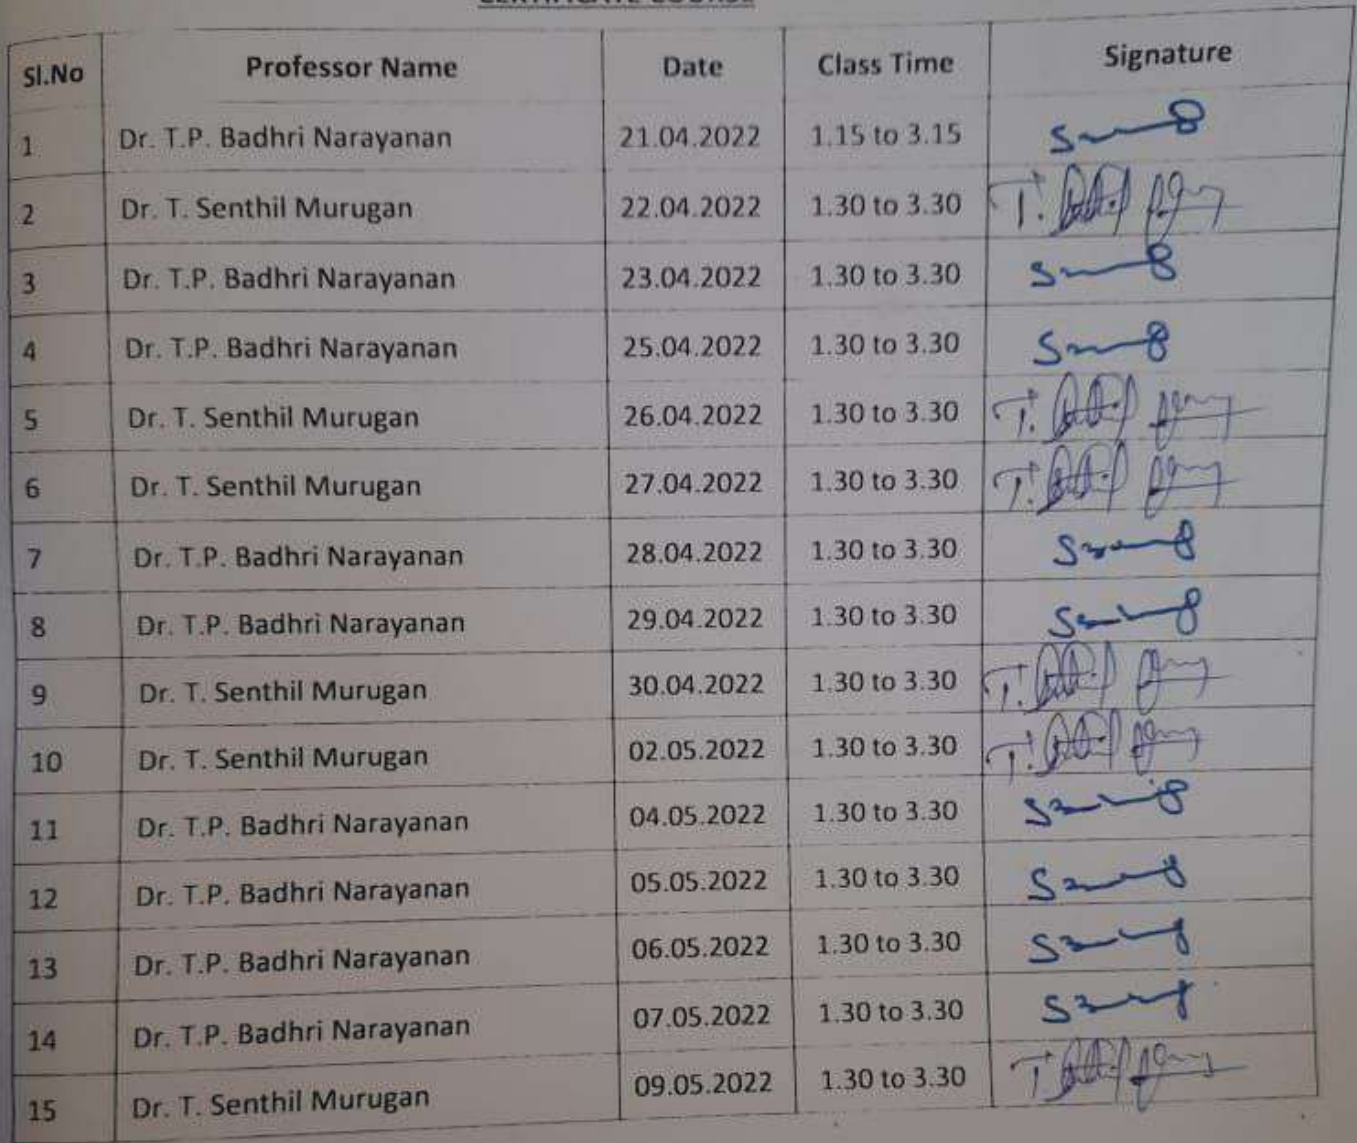 CERTIFICATE COURSE
Sl.No Professor Name Date Class Time Signature
1 Dr. T.P. Badhri Narayanan 21.04.2022 1.15 to 3.15
2 Dr. T. Senthil Murugan 22.04.2022 1.30 to 3.30
3 Dr. T.P. Badhri Narayanan 23.04.2022 1.30 to 3.30
4 Dr. T.P. Badhri Narayanan 25.04.2022 1.30 to 3.30
5 Dr. T. Senthil Murugan 26.04.2022 1.30 to 3.30
6 Dr. T. Senthil Murugan 27.04.2022 1.30 to 3.30
7 Dr. T.P. Badhri Narayanan 28.04.2022 1.30 to 3.30
8 Dr. T.P. Badhri Narayanan 29.04.2022 1.30 to 3.30
9 Dr. T. Senthil Murugan 30.04.2022 1.30 to 3.30
10 Dr. T. Senthil Murugan 02.05.2022 1.30 to 3.30
11 Dr. T.P. Badhri Narayanan 04.05.2022 1.30 to 3.30
12 Dr. T.P. Badhri Narayanan 05.05.2022 1.30 to 3.30
13 Dr. T.P. Badhri Narayanan 06.05.2022 1.30 to 3.30
14 Dr. T.P. Badhri Narayanan 07.05.2022 1.30 to 3.30
15 Dr. T. Senthil Murugan 09.05.2022 1.30 to 3.30